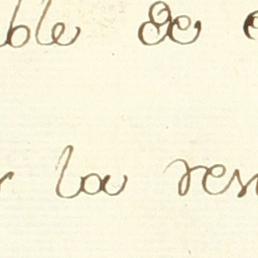 ble de
la res